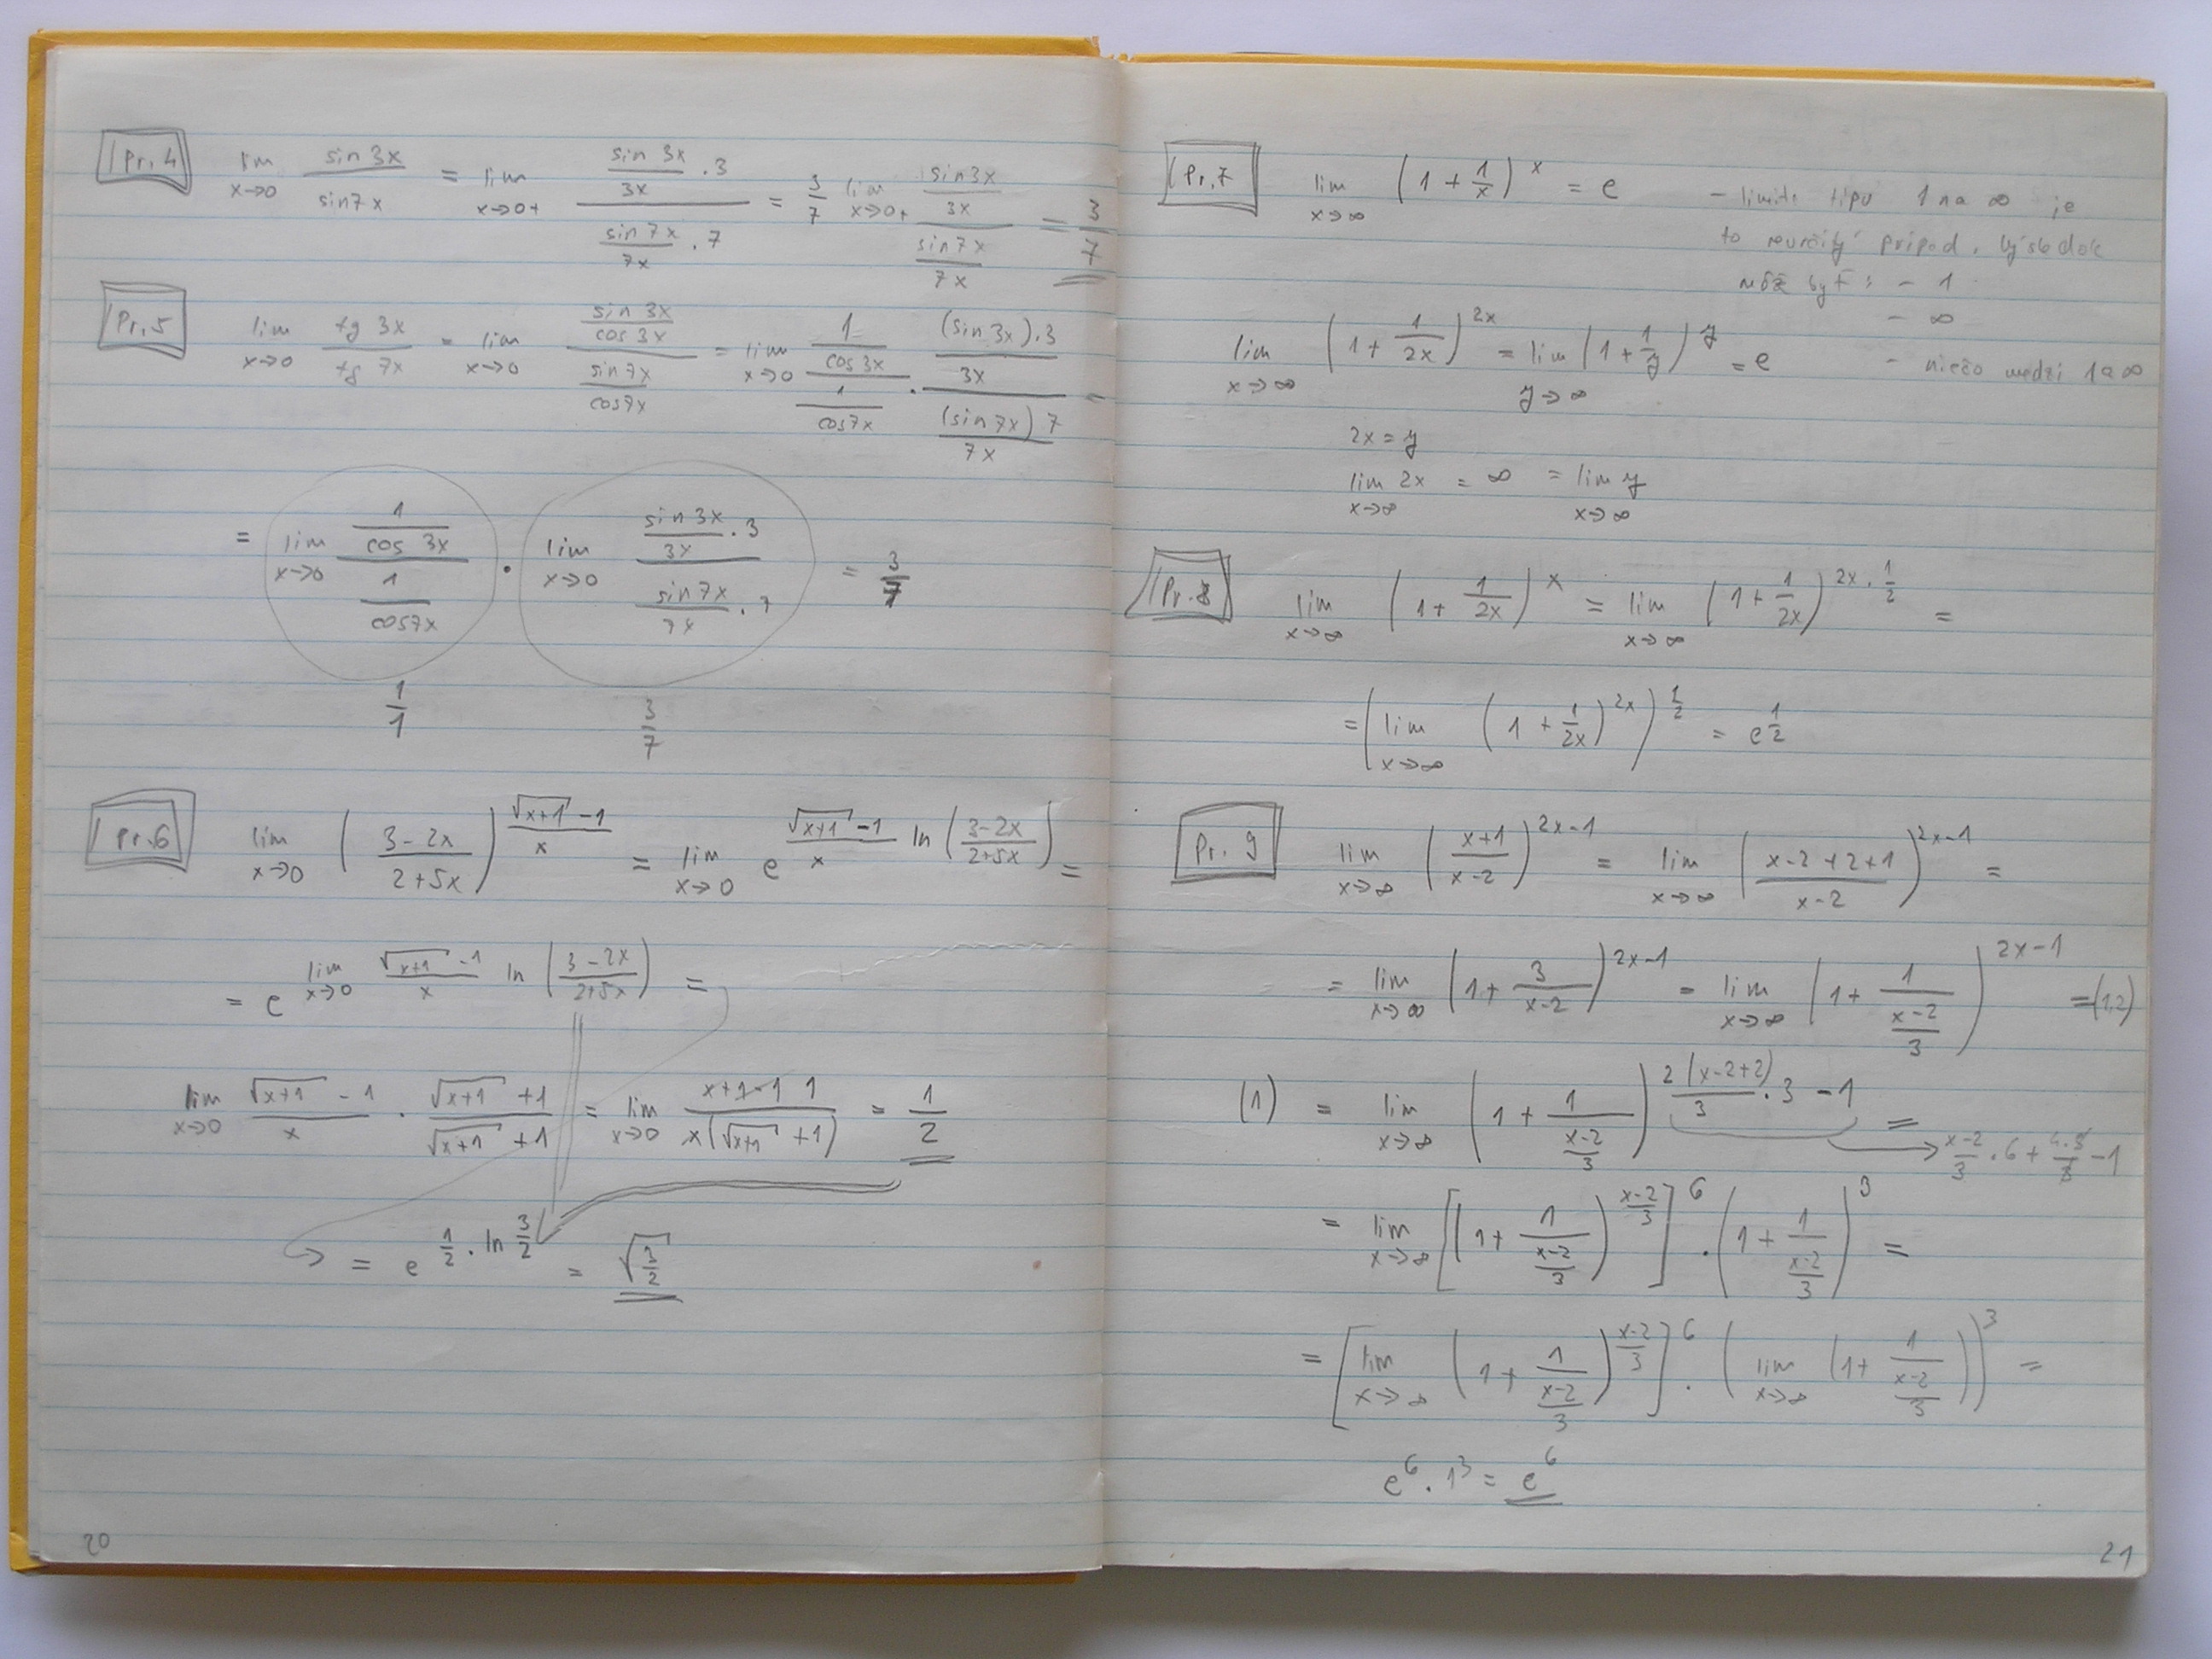 Pr. 4 lim x→0 (sin 3x)/(sin 7x) = lim x→0+ ((sin 3x)/(3x) · 3)/((sin 7x)/(7x) · 7) = 3/7 lim x→0+ ((sin 3x)/(3x))/((sin 7x)/(7x)) = 3/7
Pr. 5 lim x→0 (tg 3x)/(tg 7x) = lim x→0 ((sin 3x)/(cos 3x))/((sin 7x)/(cos 7x)) = lim x→0 (1/(cos 3x))/(1/(cos 7x)) · ((sin 3x)·3/(3x))/((sin 7x) 7/(7x)) =
= lim x→0 (1/(cos 3x))/(1/(cos 7x)) · lim x→0 ((sin 3x)/(3x) · 3)/((sin 7x)/(7x) · 7) = 3/7
1/1 3/7
Pr. 6 lim x→0 ((3-2x)/(2+5x))^((√(x+1) -1)/x) = lim x→0 e^((√(x+1) -1)/x ln((3-2x)/(2+5x))) =
= e^(lim x→0 (√(x+1) -1)/x ln((3-2x)/(2+5x))) =
lim x→0 (√(x+1) -1)/x · (√(x+1) +1)/(√(x+1) +1) = lim x→0 (x+1-1 1)/(x(√(x+1) +1)) = 1/2
= e^(1/2 · ln 3/2) = √(3/2)
20
Pr. 7 lim x→∞ (1 + 1/x)^x = e
- limita tipu 1 na ∞ je
to neurčitý prípad. Výsledok
môže byť : - 1
- ∞
- niečo medzi 1 a ∞
lim x→∞ (1 + 1/(2x))^(2x) = lim y→∞ (1 + 1/y)^y = e
2x = y
lim x→∞ 2x = ∞ = lim x→∞ y
Pr. 8 lim x→∞ (1 + 1/(2x))^x = lim x→∞ (1 + 1/(2x))^(2x · 1/2) =
= (lim x→∞ (1 + 1/(2x))^(2x))^(1/2) = e^(1/2)
Pr. 9 lim x→∞ ((x+1)/(x-2))^(2x-1) = lim x→∞ ((x-2+2+1)/(x-2))^(2x-1) =
= lim x→∞ (1 + 3/(x-2))^(2x-1) = lim x→∞ (1 + 1/((x-2)/3))^(2x-1) = (1,2)
(1) = lim x→∞ (1 + 1/((x-2)/3))^(2(x-2+2)/3 · 3 - 1) =
→ (x-2)/3 · 6 + (4·3)/3 - 1
= lim x→∞ [(1 + 1/((x-2)/3))^((x-2)/3)]^6 · (1 + 1/((x-2)/3))^3 =
= [lim x→∞ (1 + 1/((x-2)/3))^((x-2)/3)]^6 · (lim x→∞ (1 + 1/((x-2)/3)))^3 =
e^6 · 1^3 = e^6
21